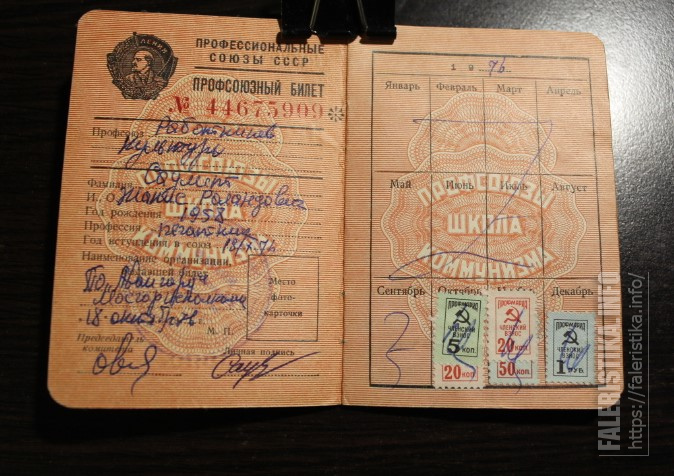 ЛЕНИН
ПРОФЕССИОНАЛЬНЫЕ
СОЮЗЫ СССР
ПРОФСОЮЗНЫЙ БИЛЕТ
№ 44675909
Профсоюз Работников
культуры
Фамилия
И. О. Роландович
Год рождения 1958
Профессия печатник
Год вступления в союз
Наименование организации,
выдавшей билет
ПО
18 октября
М. П.
Место
фото-
карточки
Председатель
комитета
Личная подпись
ПРОФСОЮЗЫ
ШКОЛА
КОММУНИЗМА
19 76
Январь Февраль Март Апрель
Май Июнь Июль Август
ПРОФСОЮЗЫ
ШКОЛА
КОММУНИЗМА
Сентябрь Октябрь Декабрь
ПРОФСОЮЗ
ЧЛЕНСКИЙ
ВЗНОС
5 КОП.
20 КОП.
ПРОФСОЮЗ
ЧЛЕНСКИЙ
ВЗНОС
20 КОП.
50 КОП.
ПРОФСОЮЗ
ЧЛЕНСКИЙ
ВЗНОС
1 РУБ.
FALERISTIKA.INFO
https://faleristika.info/